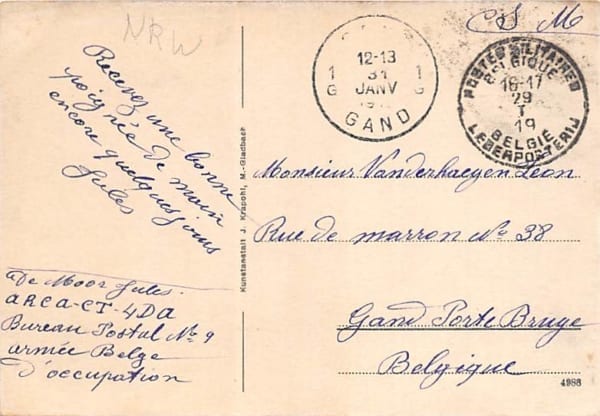 NRW
S M
12-13
31
JANV
1 1
G G
GAND
POSTES MILITAIRES
BELGIQUE
16-17
29
I
19
BELGIE
LEGERPOSTERIJ
Recevez une bonne
poignée de main
encore quelques jours
Jules
Kunstanstalt J. Krapohl, M.-Gladbach
Monsieur Vanderhaegen Léon
Rue de marron No 38
Gand Porte Bruge
Belgique
De Moor Jules.
ARCA-CT-4DA
Bureau Postal No 9
armée Belge
D'occupation
4986